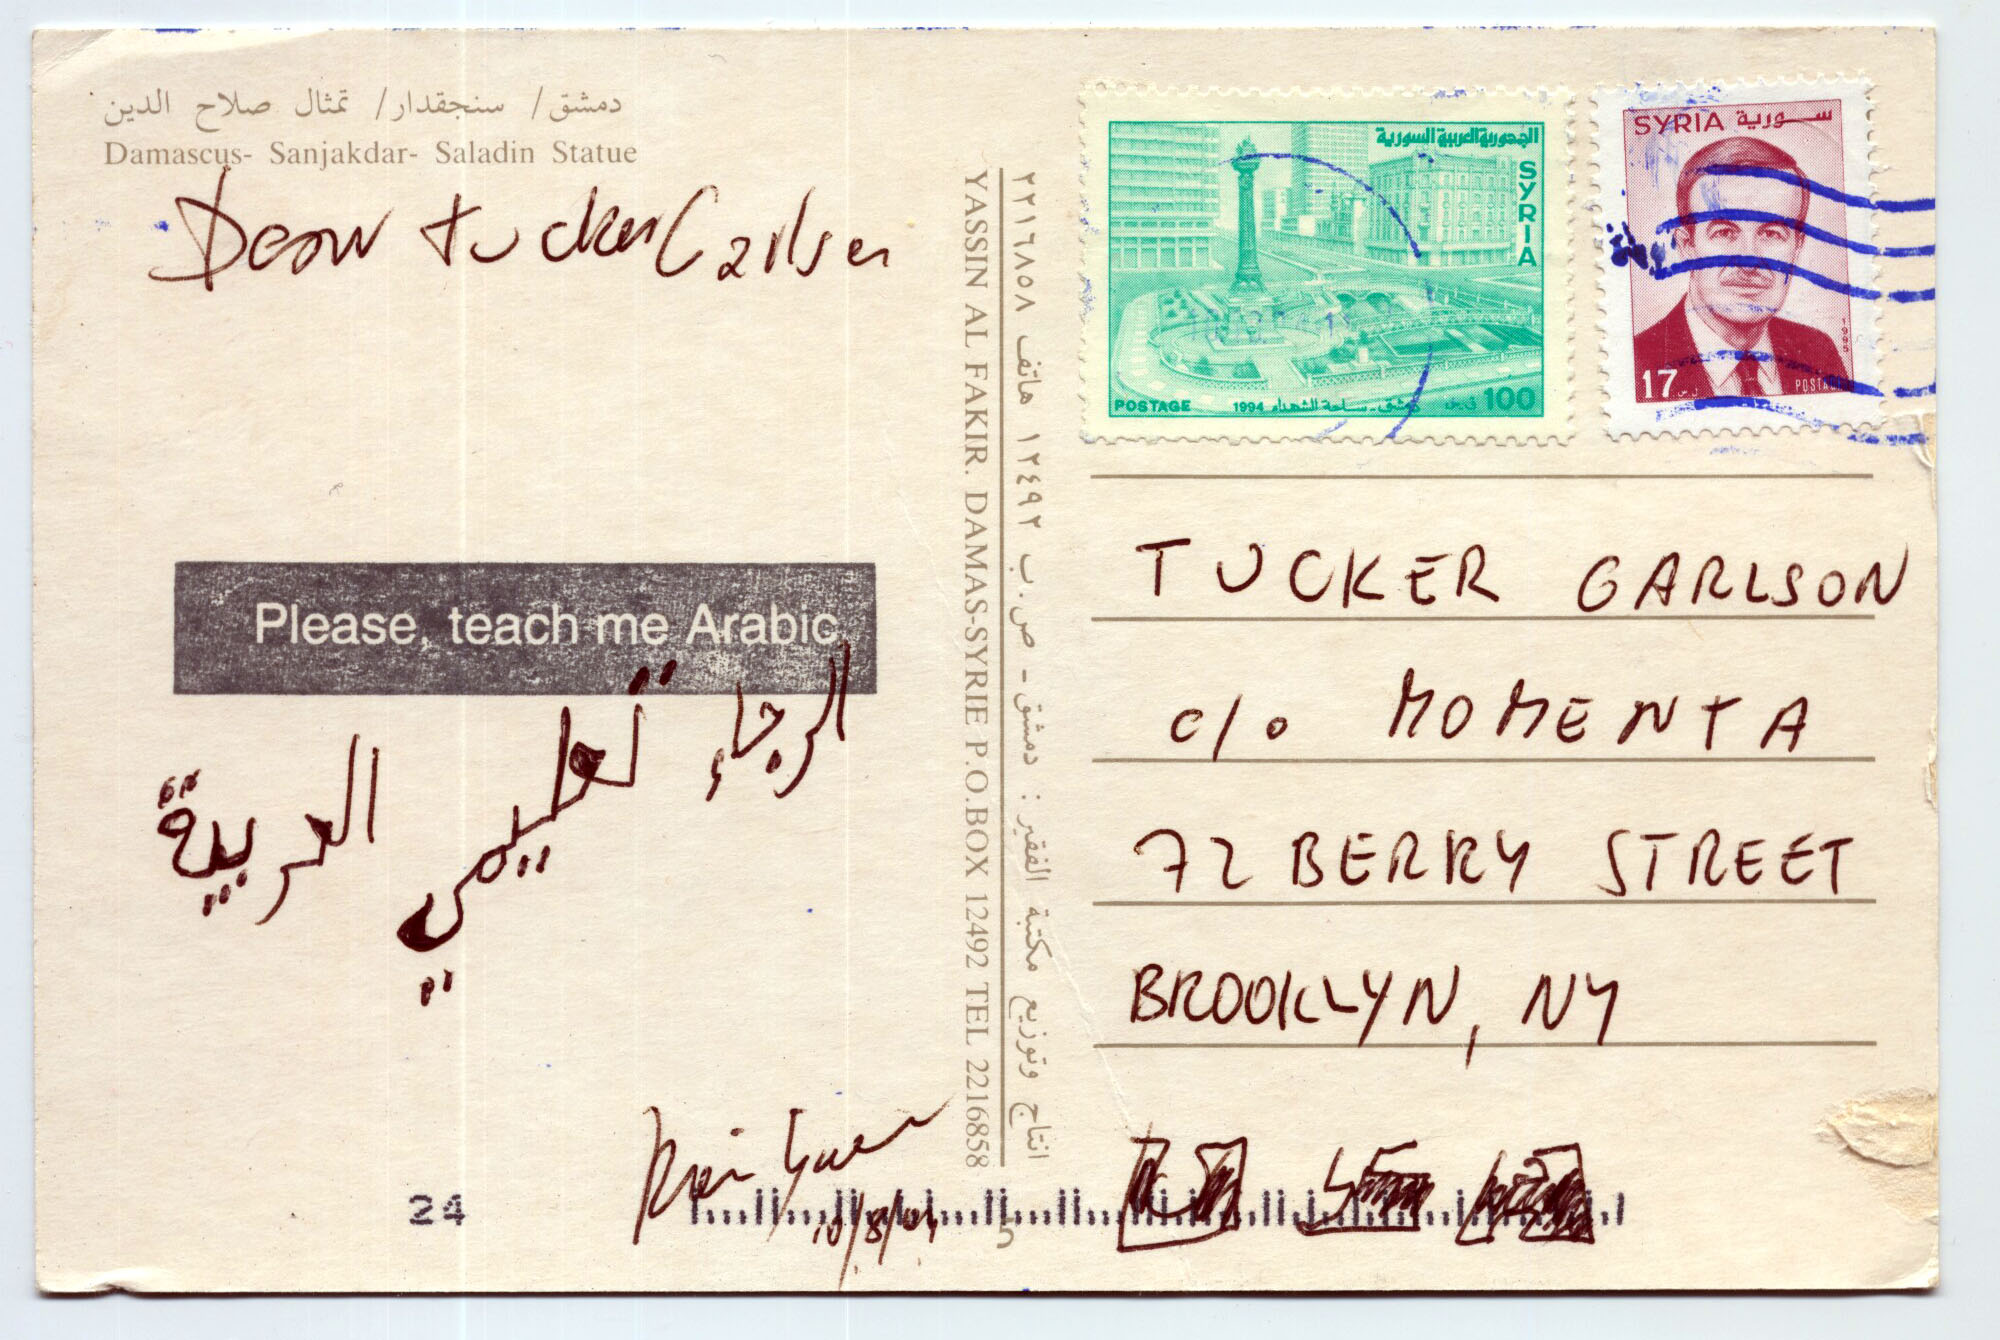 دمشق/ سنجقدار/ تمثال صلاح الدين
Damascus- Sanjakdar- Saladin Statue
Dear Tucker Carlson
Please, teach me Arabic
الرجاء تعليمي
العربية
10/8/04
24
YASSIN AL FAKIR. DAMAS-SYRIE P.O.BOX 12492 TEL 2216858
انتاج وتوزيع مكتبة الفقير : دمشق - ص.ب ١٢٤٩٢ هاتف ٢٢١٦٨٥٨
الجمهورية العربية السورية
SYRIA
POSTAGE 1994 دمشق - ساحة الشهداء 100
SYRIA سورية
1995
17 POSTAGE
TUCKER CARLSON
c/o MOMENTA
72 BERRY STREET
BROOKLYN, NY